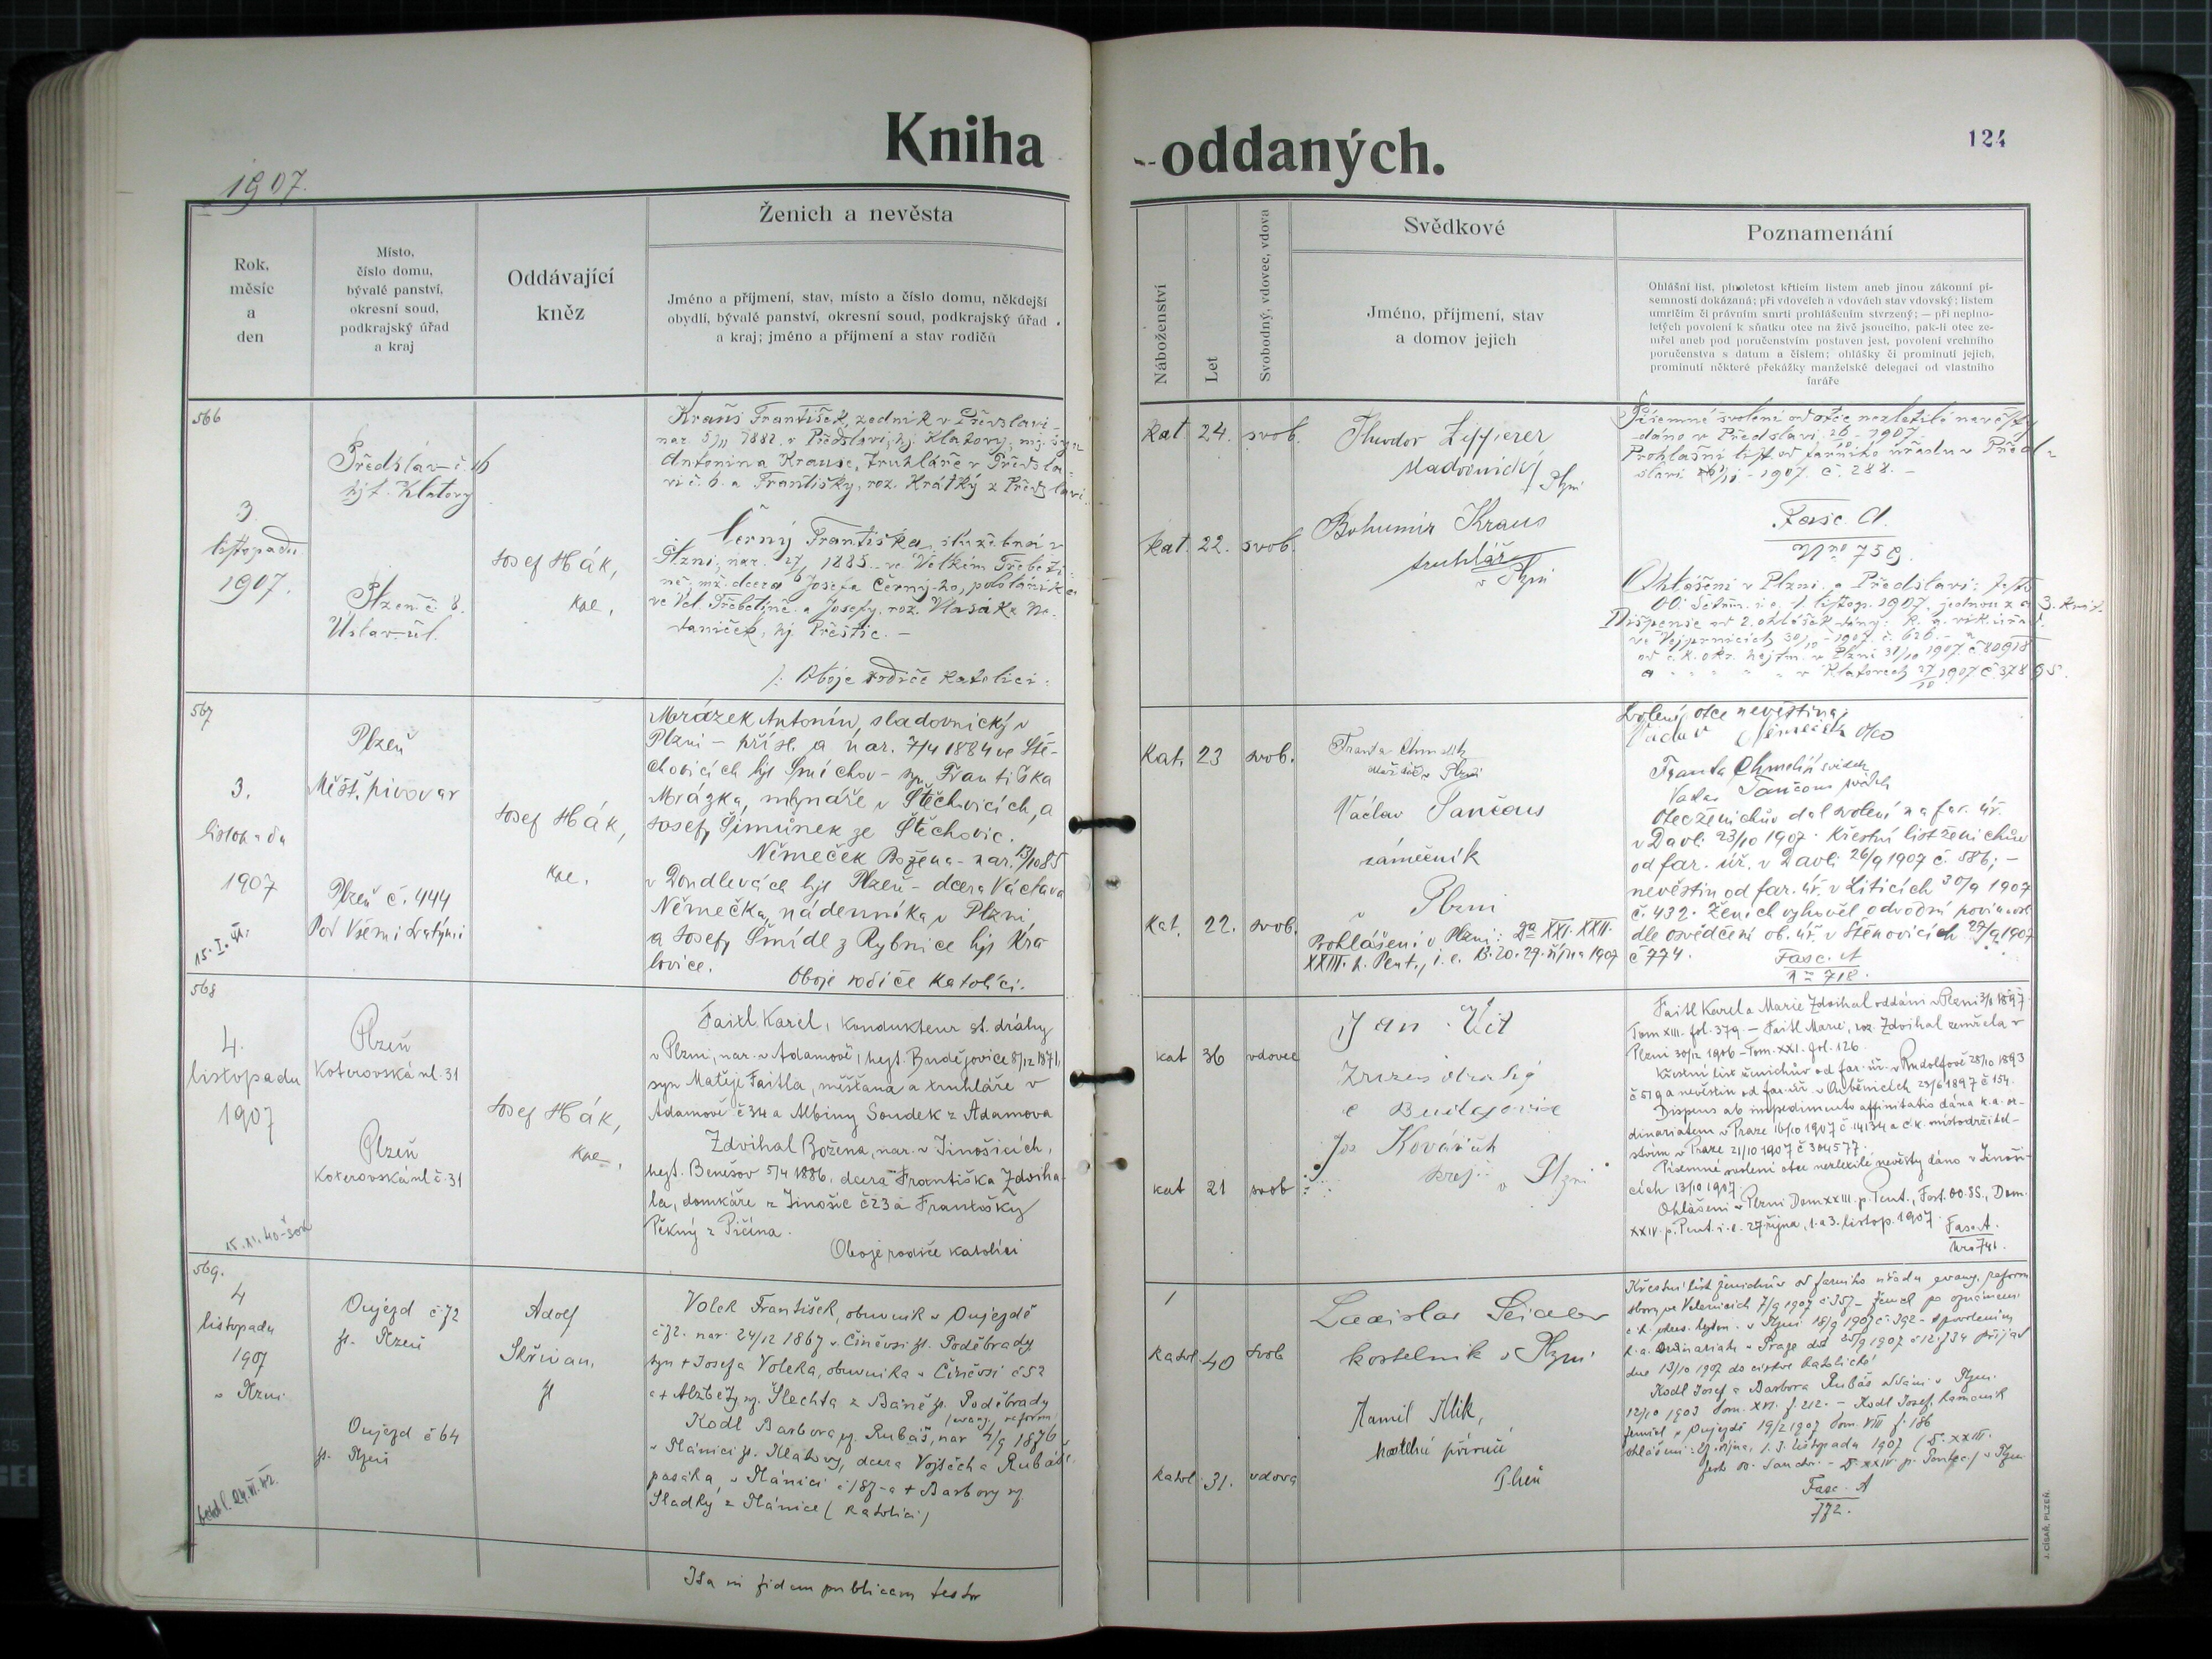 Kniha
oddaných.
124
1907.
Rok,
měsíc
a
den
Místo,
číslo domu,
bývalé panství,
okresní soud,
podkrajský úřad
a kraj
Oddávající
kněz
Ženich a nevěsta
Jméno a příjmení, stav, místo a číslo domu, někdejší
obydlí, bývalé panství, okresní soud, podkrajský úřad
a kraj; jméno a příjmení a stav rodičů
Náboženství
Let
Svobodný, vdovec, vdova
Svědkové
Jméno, příjmení, stav
a domov jejich
Poznamenání
Ohlášní list, plnoletost křticím listem aneb jinou zákonní pí-
semností dokázaná; při vdovcích a vdovách stav vdovský; listem
umrlčím či právním smrti prohlášením stvrzený; — při neplno-
letých povolení k sňatku otce na živě jsoucího, pak-li otec ze-
mřel aneb pod poručenstvím postaven jest, povolení vrchního
poručenstva s datum a číslem; ohlášky či prominutí jejich,
prominutí některé překážky manželské delegací od vlastního
faráře
566
3
listopadu
1907.
Předslav č. 6
hjt. Klatovy
Plzeň č. 8.
Úslav. ul.
Josef Hák,
František, zedník v Předslavi
nar. 1882 v Předslavi, hj. Klatovy,
Antonína Krause, truhláře v Předsla-
vi č. 6. a Františky, roz. Krátký z Předslavi
Černý Františka, služebná v
Plzni, nar. 1885 ve Velkém
dcera Josefa
ve Vel. a Josefy, roz. Vlasák z Ne-
daniček, hj. Přeštic. —
/: Oboje rodiče katolíci:
kat 24. svob.
kat. 22. svob.
Theodor
Plzni
Bohumír Kraus
truhlář
v Plzni
Písemné svolení od otce nezletilé nevěsty
dáno v Předslavi 1907
Prohlášní list od farního úřadu v Před-
slavi 1907. č. 288. —
Fasc. A.
Ohlášeni v Plzni a Předslavi:
i. e. 1. listop. 1907, jednou za 3.
ve Vejprnicích 30/10 1907. č. 626.
v Plzni 31/10 1907
v Klatovech 27/10 1907
567
3.
listopadu
1907
15. I. 41.
Plzeň
Měšť. pivovar
Plzeň č. 444
Pod Všemi Svatými
Josef Hák,
Mrázek Antonín, sladovnický v
Plzni — přísl. a nar. 7/4 1884 ve Stě-
chovicích hjt Smíchov — syn Františka
Mrázka, mlynáře v Štěchovicích, a
Josefy Šimůnek ze Štěchovic.
Němeček Božena — nar. 13/10 85
v Dondlevách hjt Plzeň — dcera Václava
Němečka, nádenníka v Plzni
a Josefy Šmídl z Rybnice hjt Kra-
lovice.
Oboje rodiče katolíci.
Kat. 23 svob.
Kat. 22. svob.
Franta
v Plzni
Václav
zámečník
v Plzni
Prohlášeni v Plzni: Dª XXI. XXII.
XXIII. p. Pent., i. e. 13. 20. 27. října 1907
Svolení otce nevěstina:
Václav Němeček otec
Franta svědek
Václav svědek
Otec ženichův dal svolení na far. úř.
v Davli 23/10 1907. Křestní list ženichův
od far. úř. v Davli 26/9 1907 č. 586; —
nevěstin od far. úř. v Liticích 30/9 1907
č. 432. Ženich vyhověl odvodní povinnosti
dle osvědčení ob. úř. v Štěnovicích 27/9 1907
č 774.
Fasc. A
718.
568
4.
listopadu
1907
15. XI. 40
Plzeň
Koterovská ul. 31
Plzeň
Koterovská ul č. 31
Josef Hák,
Faitl Karel, kondukteur st. dráhy
v Plzni, nar. v Adamově, hejt. Budějovice 8/12 1871,
syn Matěje Faitla, měšťana a truhláře v
Adamově č 34 a Albiny Soudek z Adamova
Zdvihal Božena, nar. v Jinošicích,
hejt. Benešov 5/4 1886, dcera Františka Zdviha-
la, domkáře z Jinošic č 23 a Františky
Pěkný z Pičína.
Oboje rodiče katolíci
kat 36 vdovec
kat 21 svob
Jan Vít
Jos Kovářík
v Plzni
Faitl Karel a Marie Zdvihal oddáni v Plzni 1897
Tom XIII. fol. 379. — Faitl Marie, roz. Zdvihal zemřela v
Plzni 30/12 1906 — Tom. XXI. fol. 126.
Křestní list ženichův od far. úř. v Rudolfově 28/10 1893
č 519 a nevěstin od far. úř. v 23/6 1897 č 154.
Dispens ab impedimento affinitatis dána k. a. or-
dinariatem v Praze 16/10 1907 č 14134 a c. k. místodržitel-
stvím v Praze 21/10 1907 č 304577.
Písemné svolení otce nezletilé nevěsty dáno v Jinoši-
cích 13/10 1907.
Ohlášeni v Plzni Dom XXIII. p. Pent., Fest. OO. SS., Dom.
XXIV. p. Pent. i. e. 27 října, 1. a 3. listop. 1907.
Fasc. A.
Nro 741.
569.
4
listopadu
1907
v Plzni
24. VI. 42.
Oujezd č 72
hj. Plzeň
Oujezd č 64
hj. Plzeň
Adolf
Skřivan,
Volek František, obuvník v Oujezdě
č 72. nar. 24/12 1867 v Činěvsi hj. Poděbrady
syn + Josefa Voleka, obuvníka v Činěvsi č 52
a + Alžběty roz. Šlechta z Báně hj. Poděbrady
/evang. reform/
Kodl Barbora roz. Rubáš, nar 4/9 1876
v Plánici hj. Klatovy, dcera Vojtěcha Rubáše
pasáka, v Plánici č 187 a + Barbory roz.
Sladky z Plánice (katolíci)
katol. 40 svob
katol. 31. vdova
Ladislav
kostelník v Plzni
Kamil Klik,
Plzeň
Křestní list ženichův od farního úřadu evang. reform.
sboru ve Velenicích 7/9 1907 č 357 —
v Plzni 18/9 1907 č. 392 — s povolením
k. a. Ordinariátu v Praze dto 25/9 1907 č 12.734 přijat
dne 13/10 1907 do církve katolické
Kodl Josef a Barbora Rubáš oddáni v Plzni
12/10 1903 tom. XVI. f. 212. — Kodl Josef,
zemřel v Oujezdě 19/2 1907 tom. VIII f. 186
ohlášeni: 27. října, 1. 3. listopadu 1907 (D. XXIII.
fest oo. Sanctor. — D. XXIV. p. Pentec.) v Plzni
Fasc. A
772.
Ita in fidem publicam testor
J. CÍSAŘ, PLZEŇ.